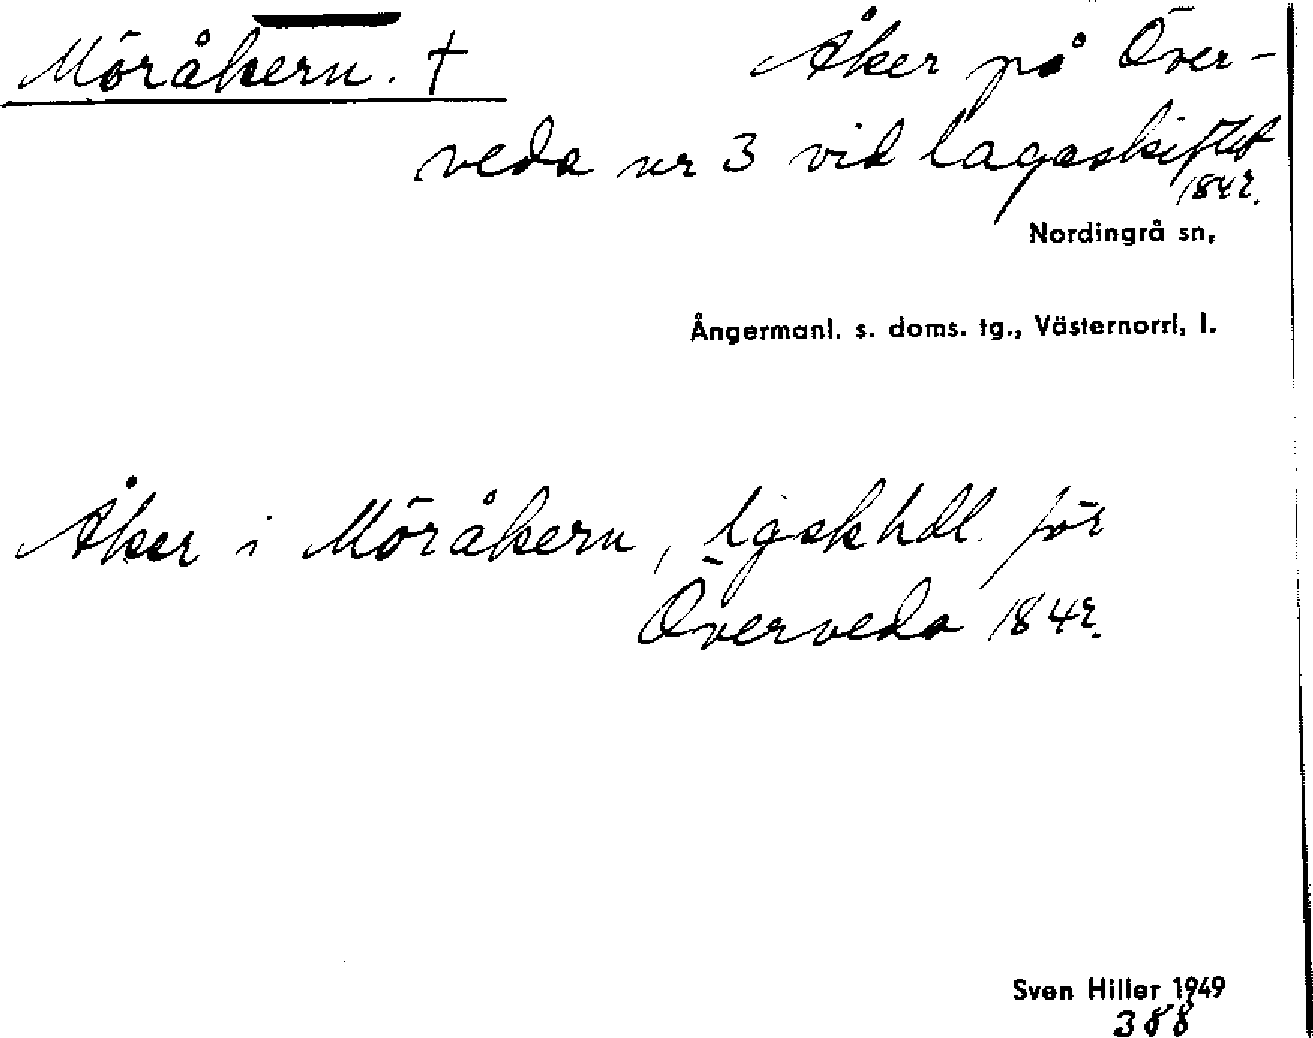 Möråkern. †
Åker på Över-
veda nr 3 vid lagaskiftet
1842.
Nordingrå sn,
Ångermanl. s. doms. tg., Västernorrl, l.
Åker i Möråkern, lgskhdl. för
Överveda 1842.
Sven Hiller 1949
388